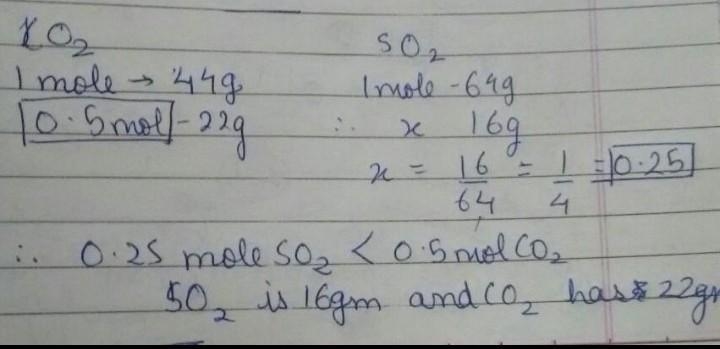 CO₂
SO₂
1 mole → 44g
1 mole - 64g
0.5mol - 22g
∴ x 16g
x = 16/64 = 1/4 = 0.25
∴ 0.25 mole SO₂ < 0.5 mol CO₂
SO₂ is 16gm and CO₂ has 22gm